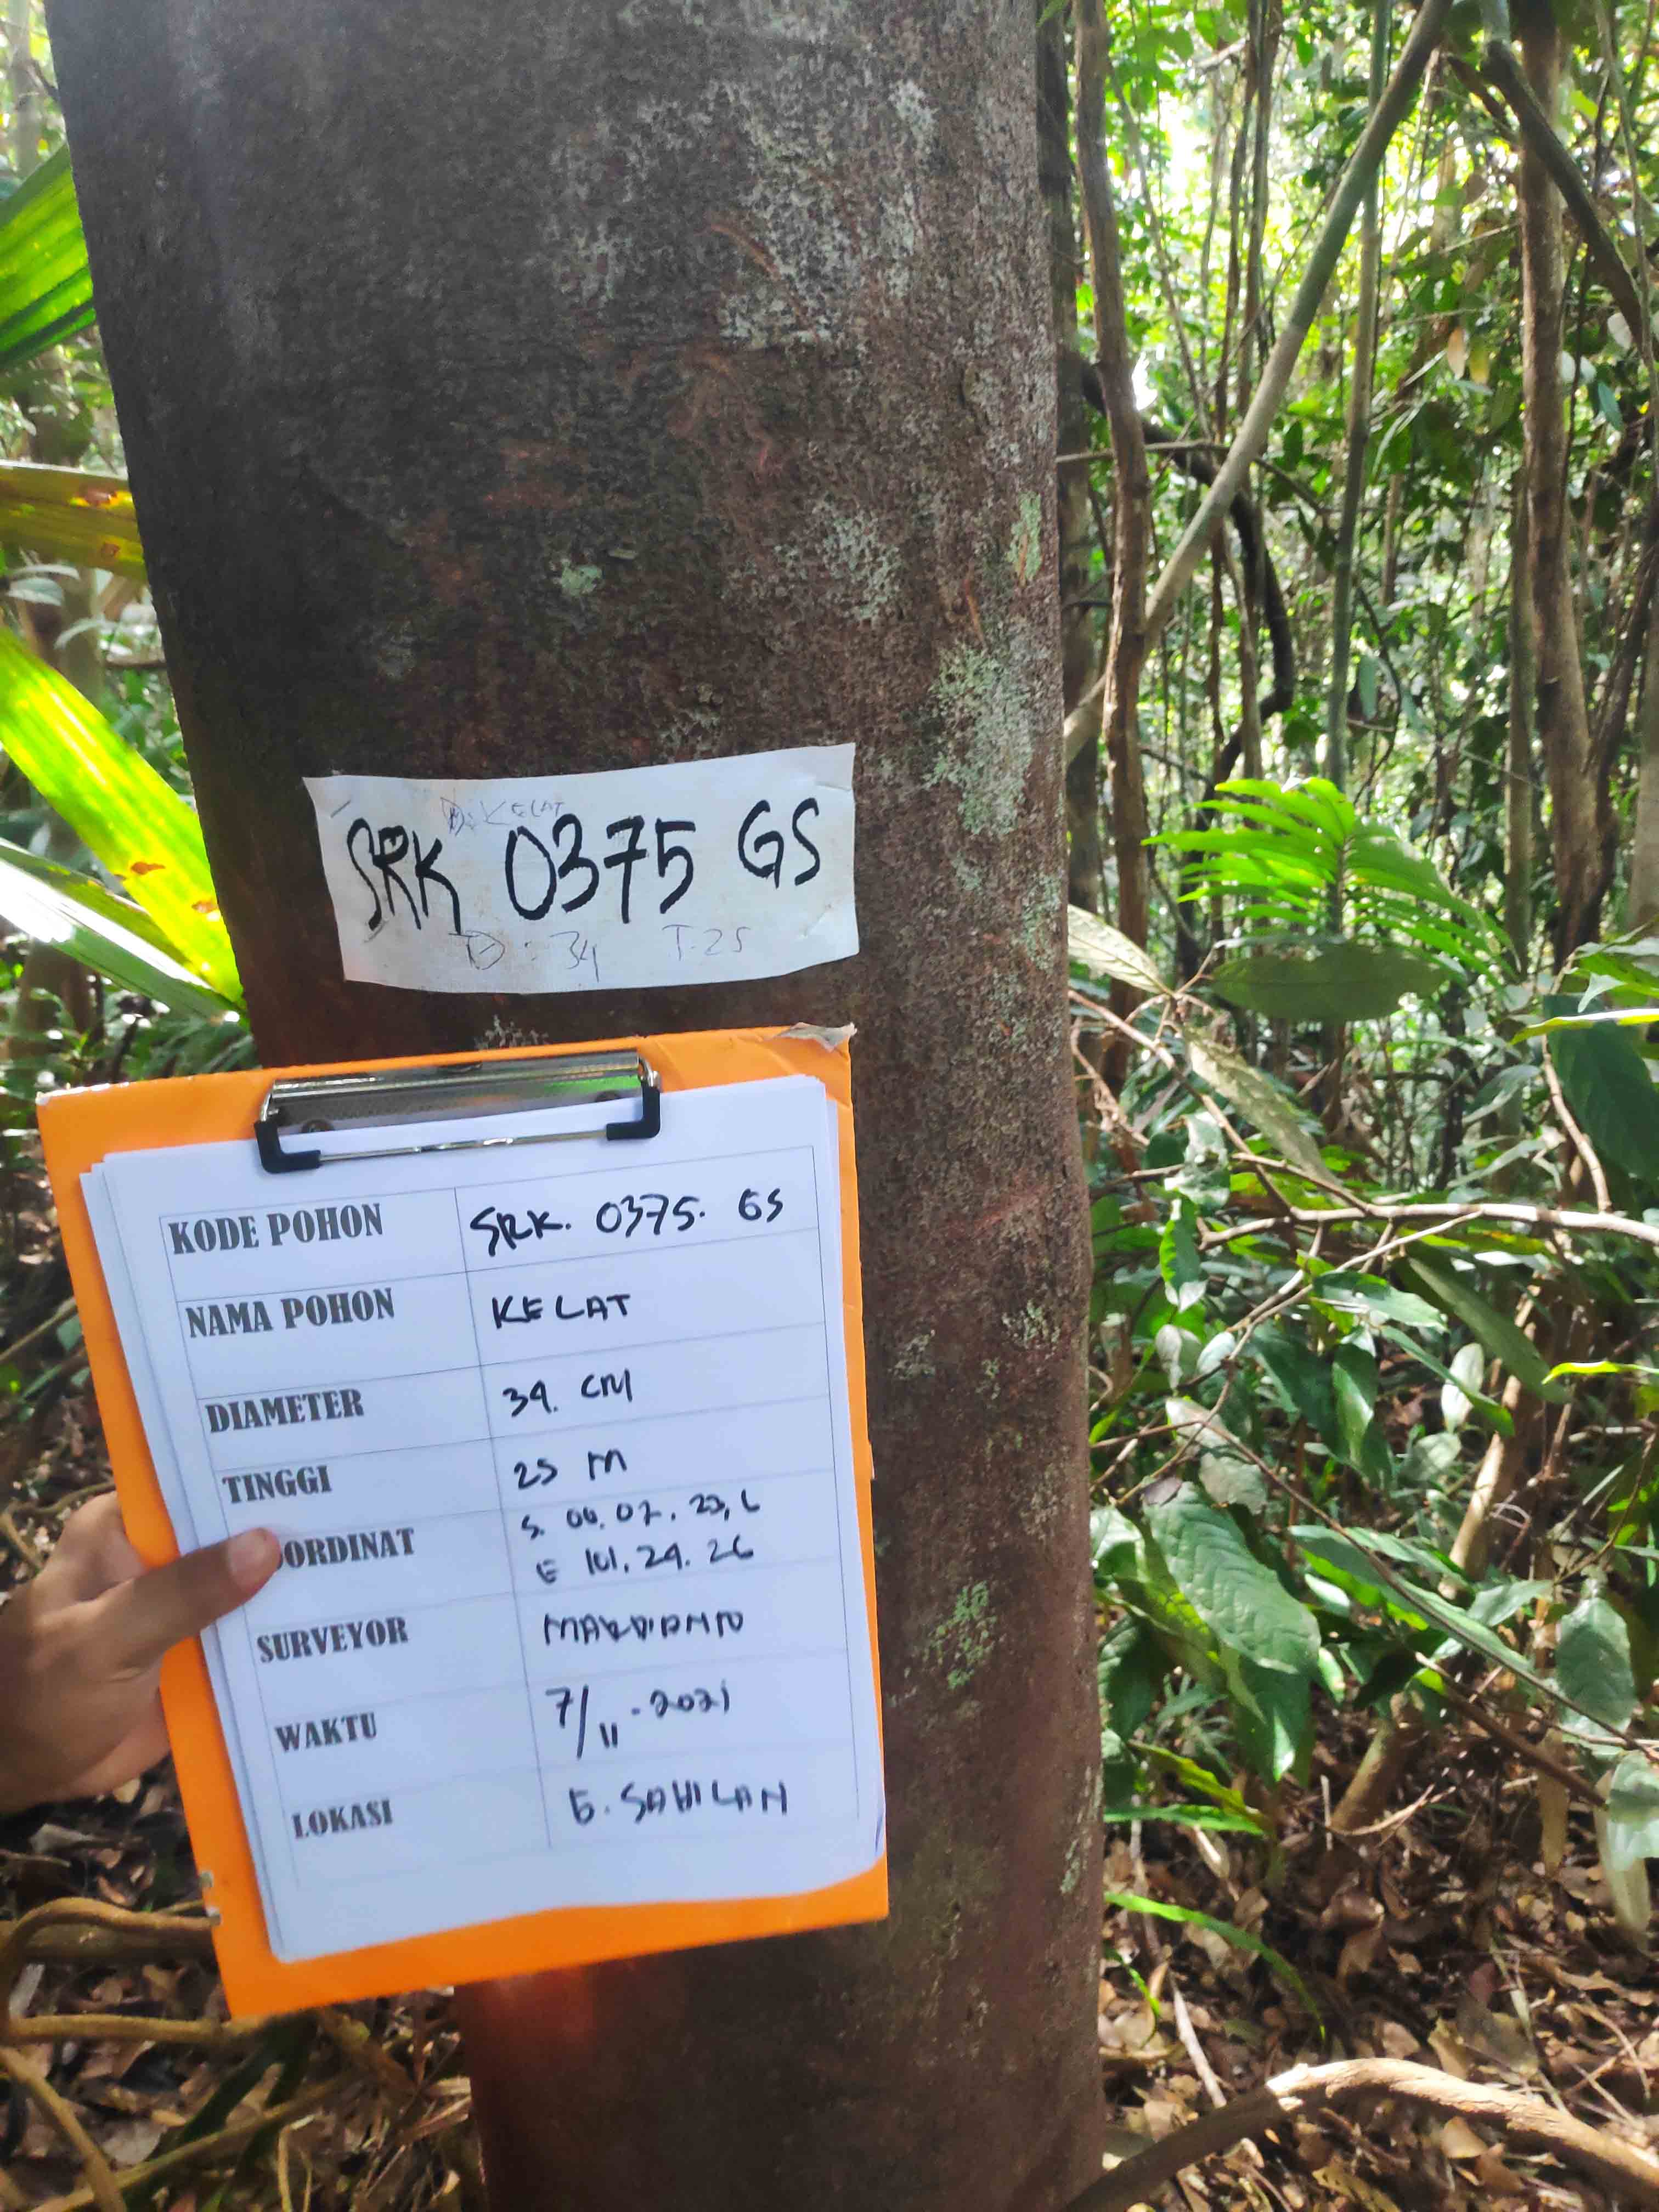 D: KELAT
SRK 0375 GS
D: 34 T. 25
KODE POHON SRK. 0375. GS
NAMA POHON KELAT
DIAMETER 34. CM
TINGGI 25 M
OORDINAT S. 00. 07. 23, 6
E 101. 24. 26
SURVEYOR
WAKTU 7/11 - 2021
LOKASI G. SAHILAN